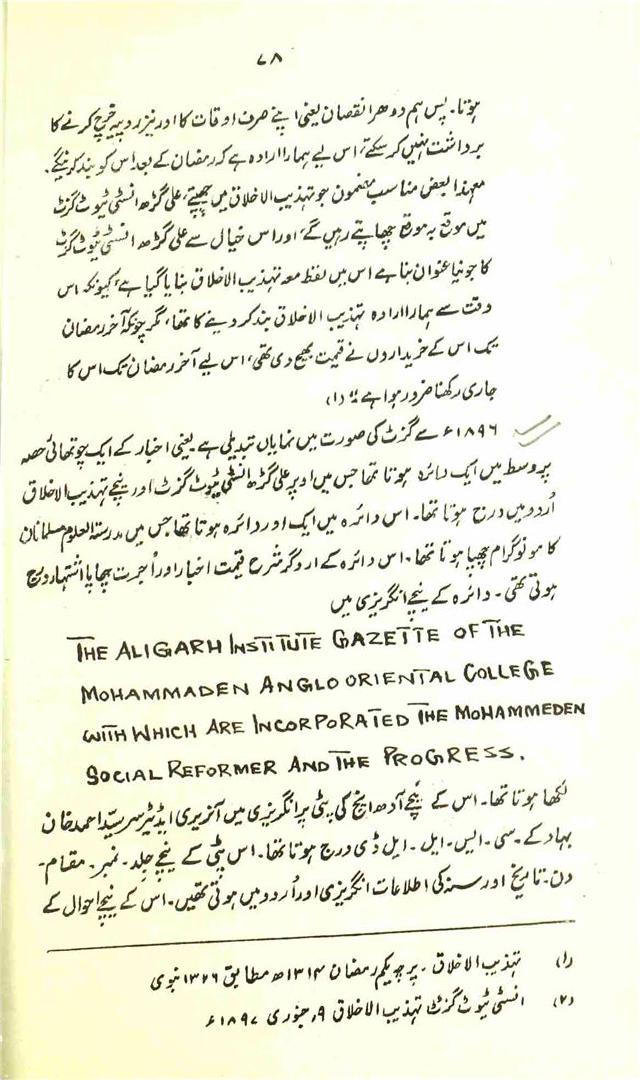 ۷۸
ہوتا۔ پس ہم دوھرا نقصان یعنی اپنے صرف اوقات کا اور نیز روپیہ خرچ کرنے کا
برداشت نہیں کر سکتے، اس لیے ہمارا ارادہ ہے کہ رمضان کے بعد اس کو بند کر دینگے۔
معہذا بعض مناسب مضمون جو تہذیب الاخلاق میں چھپتے، علی گڑھ انسٹی ٹیوٹ گزٹ
میں موقع بہ موقع چھاپتے رہیں گے، اور اس خیال سے علی گڑھ انسٹی ٹیوٹ گزٹ
کا جو نیا عنوان بنا ہے اس میں لفظ معہ تہذیب الاخلاق بنایا گیا ہے، کیونکہ اس
وقت سے ہمارا ارادہ تہذیب الاخلاق بند کر دینے کا تھا، مگر چونکہ آخر رمضان
تک اس کے خریداروں نے قیمت بھیج دی تھی، اس لیے آخر رمضان تک اس کا
جاری رکھنا ضرور ہوا ہے"۔ (۱)
۱۸۹۶ء سے گزٹ کی صورت میں نمایاں تبدیلی ہے۔ یعنی اخبار کے ایک چوتھائی حصہ
پر وسط میں ایک دائرہ ہوتا تھا جس میں اوپر علی گڑھ انسٹی ٹیوٹ گزٹ اور نیچے تہذیب الاخلاق
اُردو میں درج ہوتا تھا۔ اس دائرہ میں ایک اور دائرہ ہوتا تھا جس میں مدرستہ العلوم مسلمانان
کا مونوگرام چھپا ہوتا تھا۔ اس دائرہ کے اردگرد شرح قیمت اخبار اور اُجرت چھاپا اشتہار درج
ہوتی تھی۔ دائرہ کے نیچے انگریزی میں
THE ALIGARH INSTITUTE GAZETTE OF THE
MOHAMMADEN ANGLO ORIENTAL COLLEGE
WITH WHICH ARE INCORPORATED THE MOHAMMEDEN
SOCIAL REFORMER AND THE PROGRESS.
لکھا ہوتا تھا۔ اس کے نیچے آدھ اینچ کی پٹی پر انگریزی میں آنریری ایڈیٹر سر سید احمد خان
بہادر کے۔ سی۔ ایس۔ ایل۔ ایل ڈی درج ہوتا تھا۔ اس پٹی کے نیچے جلد۔ نمبر۔ مقام۔
دن۔ تاریخ اور سنہ کی اطلاعات انگریزی اور اُردو میں ہوتی تھیں۔ اس کے نیچے احوال کے
(۱) تہذیب الاخلاق۔ پرچہ یکم رمضان ۱۳۱۴ھ مطابق ۱۳۲۶ نبوی
(۲) انسٹی ٹیوٹ گزٹ تہذیب الاخلاق ۹، جنوری ۱۸۹۷ء